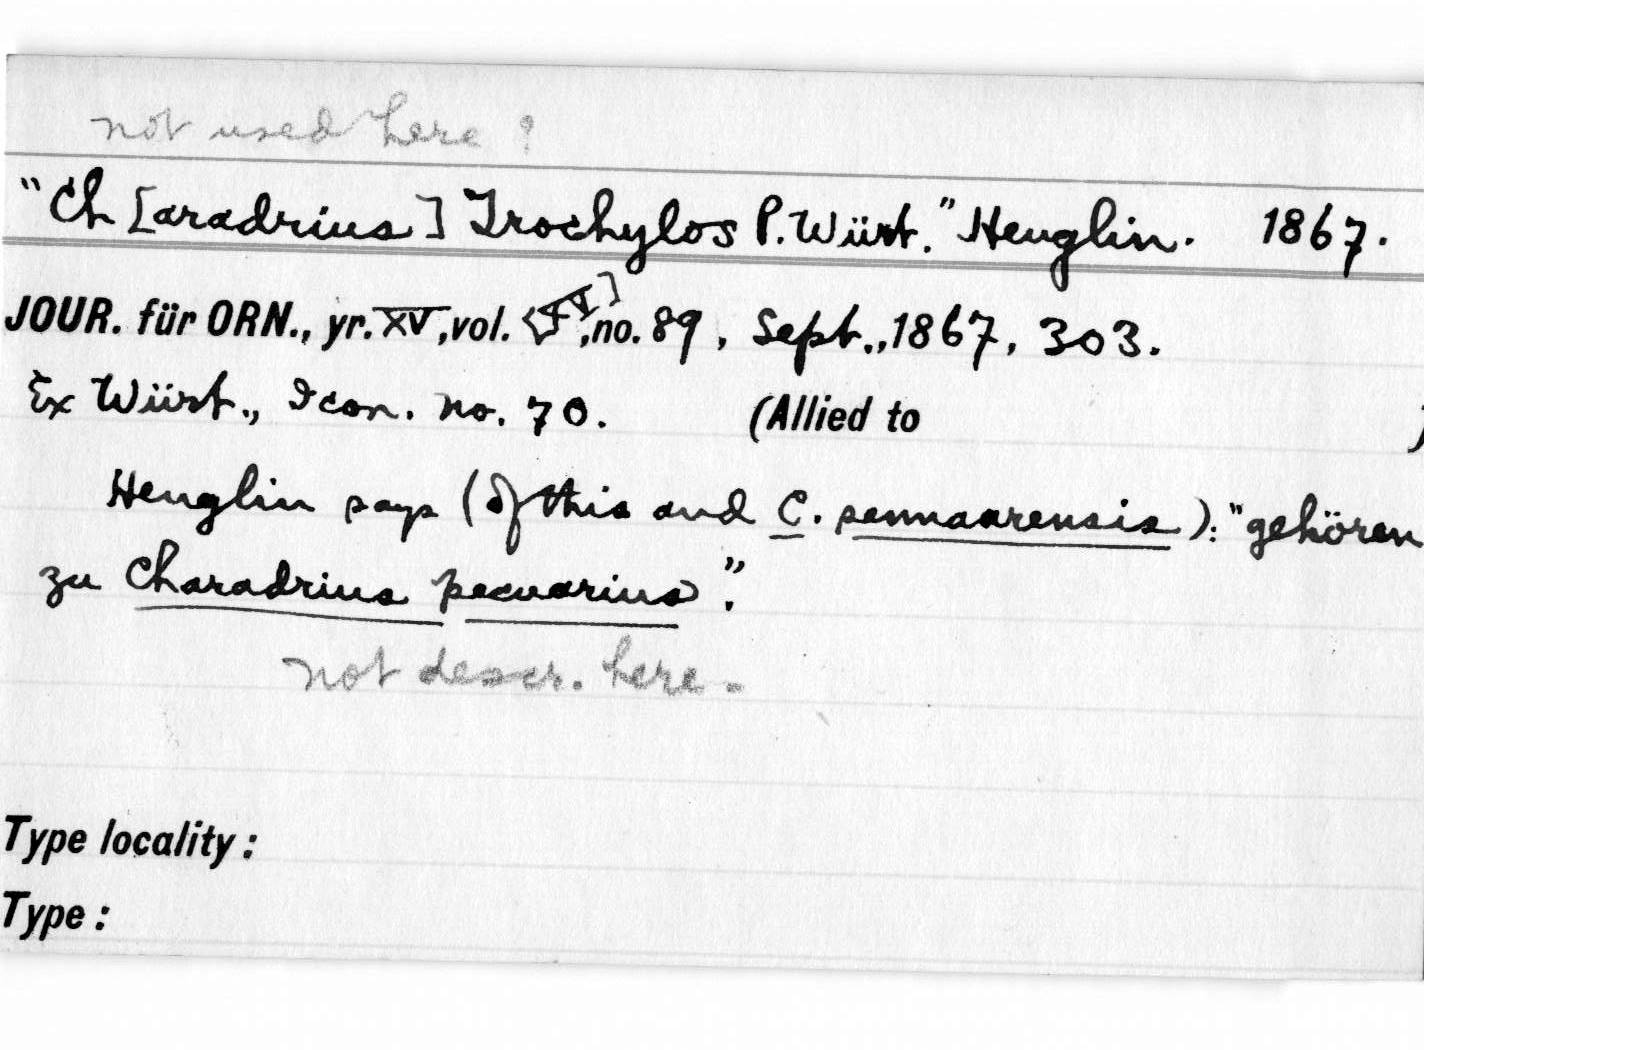 not used here?
"Ch[aradrius] Trochylos P. Würt." Heuglin. 1867.
JOUR. für ORN., yr. XV, vol. [XV], no. 89, Sept., 1867, 303.
Ex Würt., Icon. no. 70. (Allied to )
Heuglin says (of this and C. sennaarensis): "gehören
zu Charadrius pecuarius".
not descr. here.
Type locality:
Type: